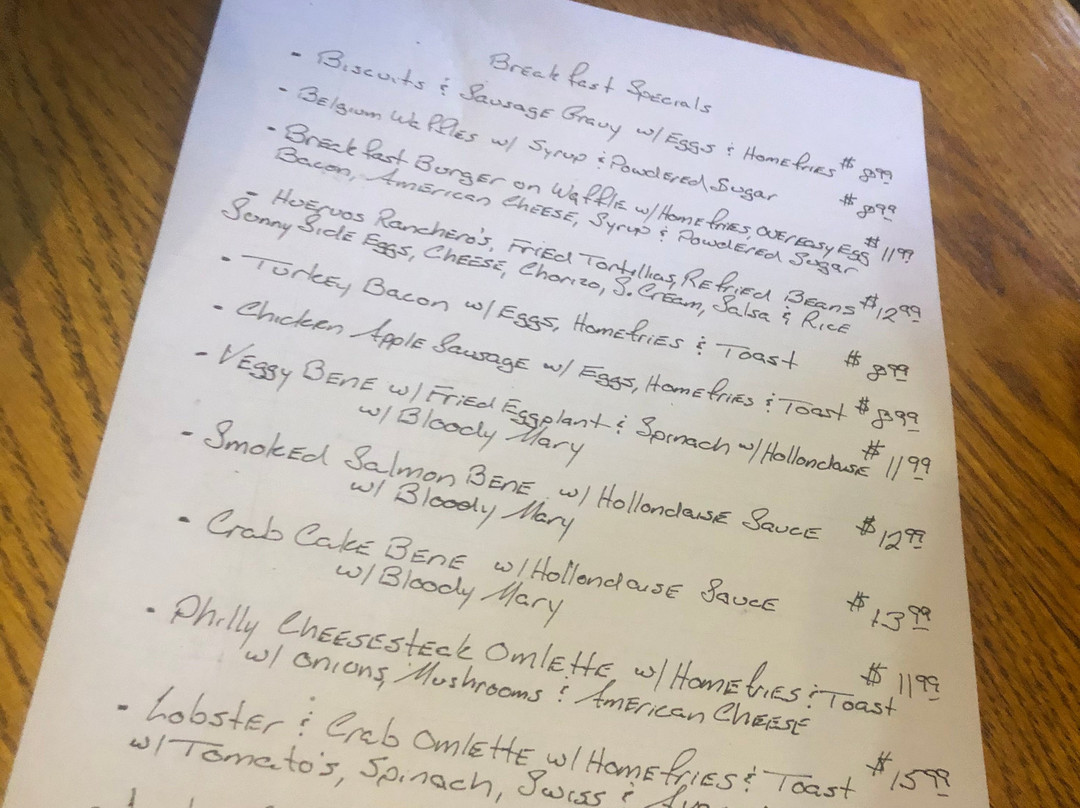 Breakfast Specials
- Biscuits & Sausage Gravy w/ Eggs & Homefries $8.99
- Belgium Waffles w/ Syrup & Powdered Sugar $8.99
- Breakfast Burger on Waffle w/ Homefries, overeasy Egg $11.99
Bacon, American Cheese, Syrup & Powdered Sugar
- Huervos Ranchero's, Fried Tortillias, Refried Beans $12.99
Sunny Side Eggs, Cheese, Chorizo, S. Cream, Salsa & Rice
- Turkey Bacon w/ Eggs, Homefries & Toast $8.99
- Chicken Apple Sausage w/ Eggs, Homefries & Toast $8.99
- Veggy Bene w/ Fried Eggplant & Spinach w/ Hollondaise $11.99
w/ Bloody Mary
- Smoked Salmon Bene w/ Hollondaise Sauce $12.99
w/ Bloody Mary
- Crab Cake Bene w/ Hollondaise Sauce $13.99
w/ Bloody Mary
- Philly Cheesesteak Omlette w/ Homefries & Toast $11.99
w/ onions, Mushrooms & American Cheese
- Lobster & Crab Omlette w/ Homefries & Toast $15.99
w/ Tomato's, Spinach, Swiss &